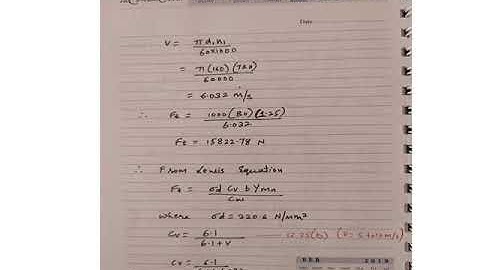 Date
V = πd₁n₁ / 60×1000
= π(160)(720) / 60000
= 6.032 m/s
∴ Ft = 1000 (80)(1.25) / 6.032
Ft = 15822.78 N
∴ From Lewis Equation
Ft = σd Cv b Y mn / Cw
where σd = 220.6 N/mm²
Cv = 6.1 / 6.1+V
Cv = 6.1
FEB 2019